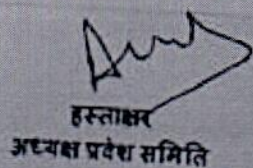 हस्ताक्षर
अध्यक्ष प्रवेश समिति